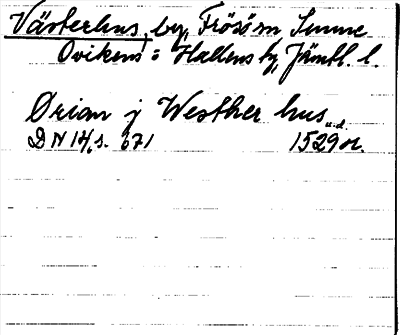 Västerhus, by, Frösö m Sunne
Ovikens o Hallens tg, Jämtl. l.
Ørian j Westher hus
u.d.
DN 14, s. 671 1529 or.